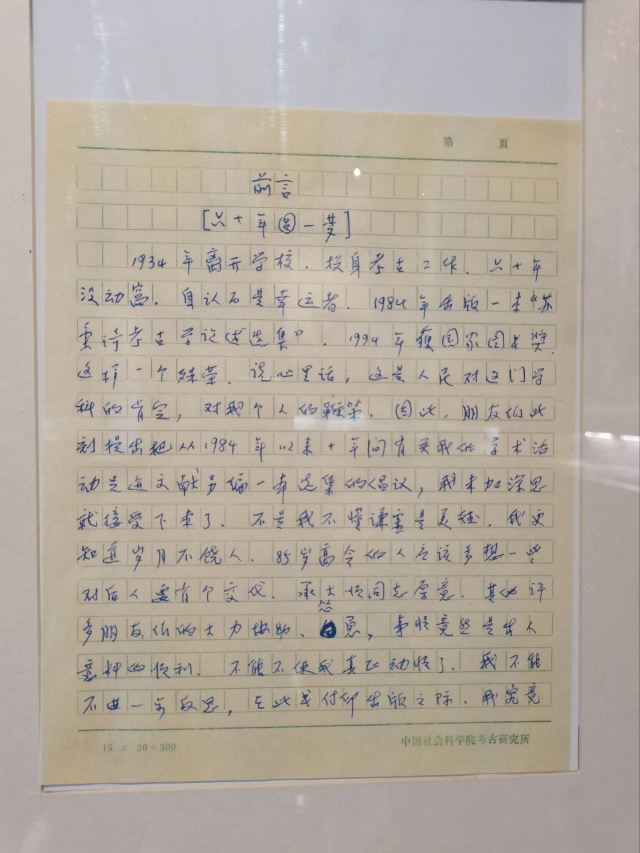 第 页
前言
[六十年圆一梦]
1934年离开学校,投身考古工作,六十年
没动窝,自认不是幸运者。1984年出版一本“苏
秉琦考古学论述选集”,1994年获国家图书奖
这样一个殊荣。说心里话,这是人民对这门学
科的肯定,对我个人的鞭策。因此,朋友们此
刻提出把从1984年以来十年间有关我的学术活
动这文献另编一本选集的倡议,我未加深思
就接受下来了。不是我不懂谦虚是美德。我更
知道岁月不饶人。85岁高令的人应该多想一些
对后人要有个交代。承大恒同志厚意。其他许
多朋友们的大力协助。事情竟然是出人
意料的顺利。不能不使我真正动情了。我不能
不进一步反思,在此书付印出版之际,我究竟
15 × 20=300
中国社会科学院考古研究所